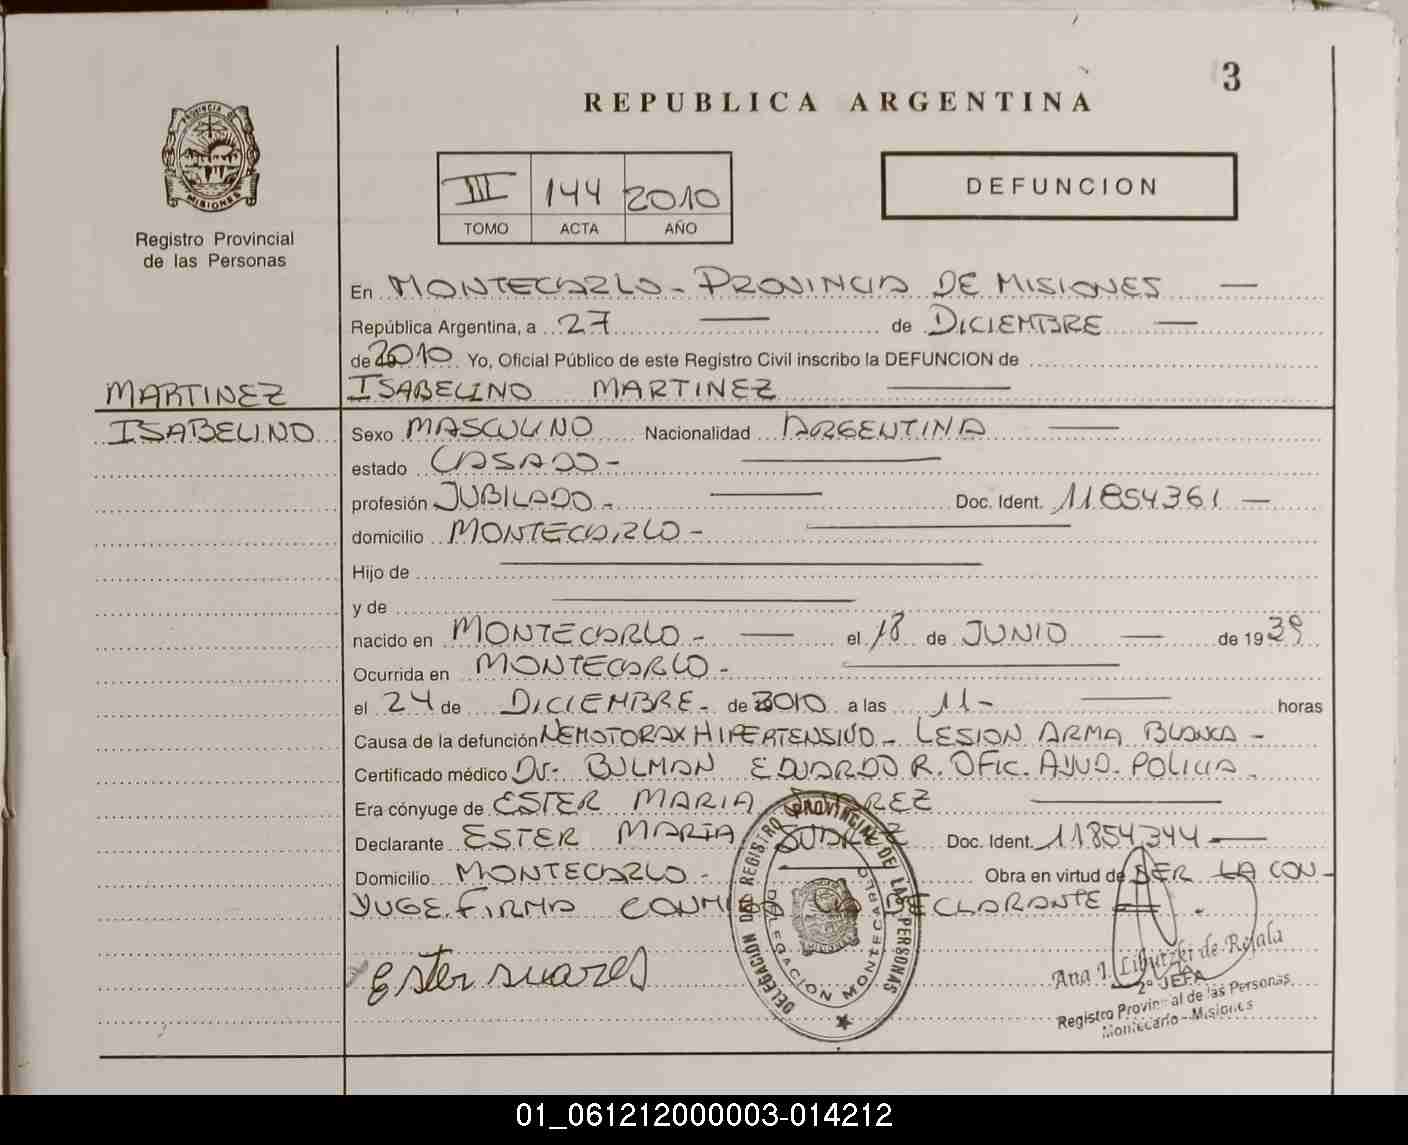 3
REPUBLICA ARGENTINA
PROVINCIA DE
MISIONES
Registro Provincial
de las Personas
III 144 2010
TOMO ACTA AÑO
DEFUNCION
En MONTECARLO - PROVINCIA DE MISIONES —
República Argentina, a 27 — de DICIEMBRE —
de 2010 Yo, Oficial Público de este Registro Civil inscribo la DEFUNCION de
MARTINEZ
ISABELINO
ISABELINO MARTINEZ —
Sexo MASCULINO Nacionalidad ARGENTINA —
estado CASADO - —
profesión JUBILADO - — Doc. Ident. 11854361 —
domicilio MONTECARLO - —
Hijo de —
y de —
nacido en MONTECARLO - — el 18 de JUNIO — de 1939
Ocurrida en MONTECARLO - —
el 24 de DICIEMBRE - de 2010 a las 11 - — horas
Causa de la defunción NEMOTORAX HIPERTENSIVO - LESION ARMA BLANCA -
Certificado médico Dr. BULMAN EDUARDO R. OFIC. AYUD. POLICIA.
Era cónyuge de ESTER MARIA SUAREZ —
Declarante ESTER MARIA SUAREZ Doc. Ident. 11854344 —
Domicilio MONTECARLO - — Obra en virtud de SER LA CON-
YUGE. FIRMA CONMIGO LA DECLARANTE
Ester suares
DELEGACION DEL REGISTRO PROVINCIAL DE LAS PERSONAS
DELEGACION MONTECARLO
Ana I. de Rejala
2º JEFA
Registro Provincial de las Personas
Montecarlo - Misiones
01_061212000003-014212